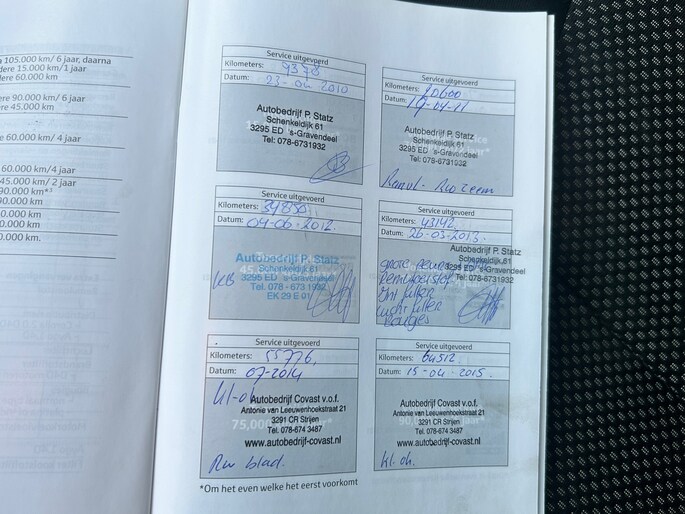 105.000 km/ 6 jaar, daarna
dere 15.000 km/1 jaar
dere 60.000 km
ere 90.000 km/ 6 jaar
ere 45.000 km
ere 60.000 km/4 jaar
60.000 km/4 jaar
45.000 km/ 2 jaar
90.000 km*³
90.000 km
0.000 km
0.000 km
0.000 km.
Service uitgevoerd
Kilometers: 9378
Datum: 23-04 2010
Autobedrijf P. Statz
Schenkeldijk 61
3295 ED 's-Gravendeel
Tel: 078-6731932
Service uitgevoerd
Kilometers: 20600
Datum: 19-04-11
Autobedrijf P. Statz
Schenkeldijk 61
3295 ED 's-Gravendeel
Tel: 078-6731932
Service uitgevoerd
Kilometers: 34850
Datum: 04-06-2012.
Autobedrijf P. Statz
Schenkeldijk 61
3295 ED 's-Gravendeel
Tel. 078 - 673 1932
EK 29 E 01
KB
Service uitgevoerd
Kilometers: 43142
Datum: 26-03-2013.
Autobedrijf P. Statz
Schenkeldijk 61
3295 ED 's-Gravendeel
Tel: 078-6731932
grote
Remvloeistof
filter
lucht filter
Bougies
Service uitgevoerd
Kilometers: 55776,
Datum: 07-2014
kl-o
Autobedrijf Covast v.o.f.
Antonie van Leeuwenhoekstraat 21
3291 CR Strijen
Tel. 078-674 3487
75,000
www.autobedrijf-covast.nl
Rw blad.
Service uitgevoerd
Kilometers: 64512,
Datum: 15-04-2015.
Autobedrijf Covast v.o.f.
Antonie van Leeuwenhoekstraat 21
3291 CR Strijen
Tel. 078-674 3487
www.autobedrijf-covast.nl
kl. oh.
*Om het even welke het eerst voorkomt